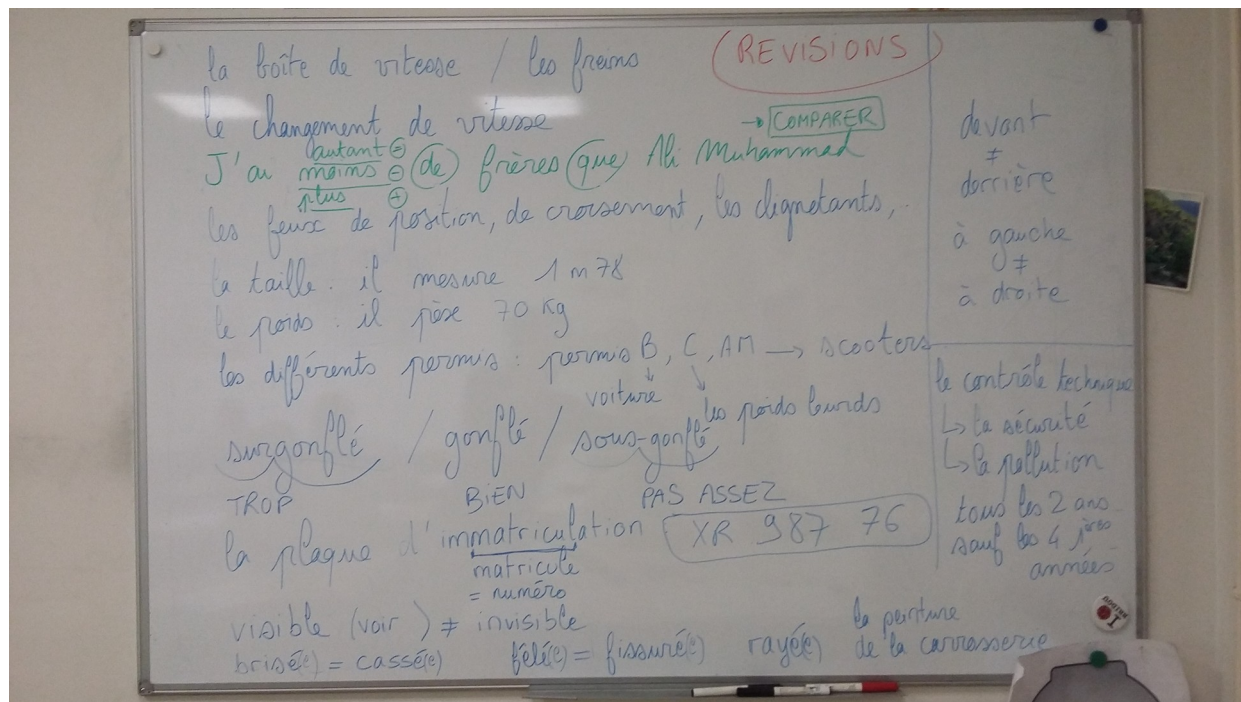 la boîte de vitesse / les freins
REVISIONS
le changement de vitesse
→ COMPARER
autant =
J'ai moins - de frères que Ali Muhammad
plus +
les feux de position, de croisement, les clignotants,
la taille. il mesure 1 m 78
le poids : il pèse 70 Kg
les différents permis : permis B, C, AM → scooters
voiture
les poids lourds
surgonflé / gonflé / sous-gonflé
TROP BIEN PAS ASSEZ
la plaque d'immatriculation XR 987 76
matricule
= numéro
visible (voir ) ≠ invisible
brisé(e) = cassé(e) fêlé(e) = fissuré(e) rayé(e) la peinture
de la carrasserie
devant
≠
derrière
à gauche
≠
à droite
le contrôle technique
↳ la sécurité
↳ la pollution
tous les 2 ans
sauf les 4 1ères
années